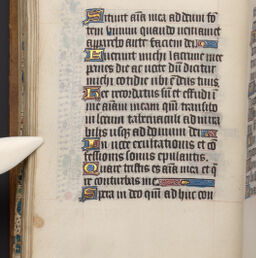 Sitivit aīa mea ad deum fō
tem vivum quando veniam et
apparebo ante faciem dei
Fuerunt michi lacrime mee
panes die ac nocte dum dicitur
michi cotidie ubi ē deus tuus
Hec recordatus sū et effudi ī
me aīam meam qm̄ transibo
in locum tabernaculi admira
bilis usqȝ ad domum dei
In voce exultationis et cō
fessionis sonus epulantis
Quare tristis es aīa mea et q̄
re conturbas me
Spera in deo qm̄ adhuc con